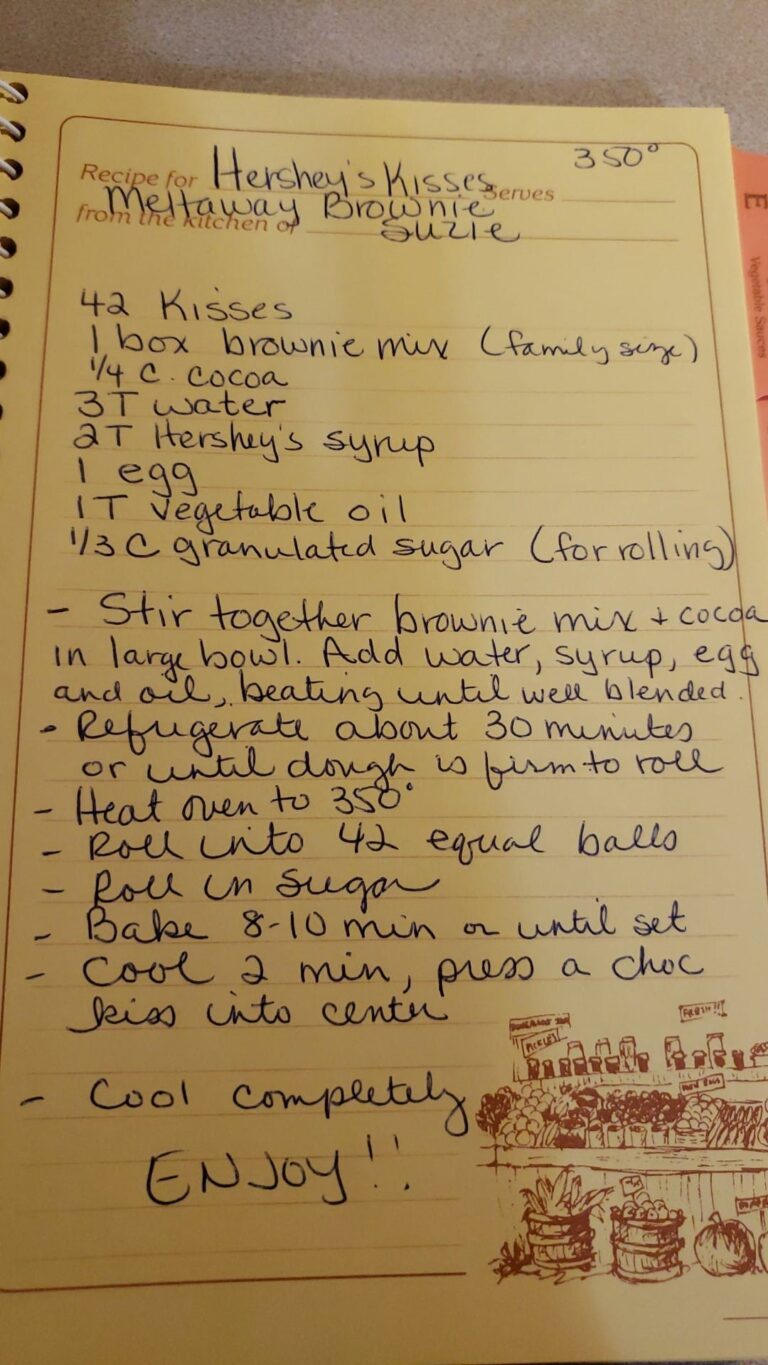 350°
Recipe for Hershey's Kisses Serves
Meltaway Brownie
from the kitchen of Suzie
42 Kisses
1 box brownie mix (family size)
1/4 C. cocoa
3T water
2T Hershey's syrup
1 egg
1T vegetable oil
1/3 C granulated sugar (for rolling)
- Stir together brownie mix + cocoa
in large bowl. Add water, syrup, egg
and oil, beating until well blended.
- Refugerate about 30 minutes
or until dough is firm to roll
- Heat oven to 350°
- Roll into 42 equal balls
- Roll in sugar
- Bake 8-10 min or until set
- Cool 2 min, press a choc
kiss into center
- Cool completely
ENJOY!!
PICKLES
FRESH!!
E
Vegetable Sauces